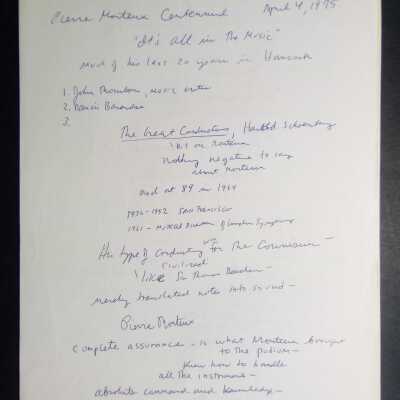 Pierre Monteux Centennial April 4, 1975
"It's all in the Music"
Most of his last 20 years in Hancock
1. John Thornton, music critic
2. Francis
3.
The Great Conductors, Harold Schonberg
on Monteux
nothing negative to say
about Monteux
died at 89 in 1964
1936-1952 San Francisco
1961 - Musical Director of London Symphony
His type of conducting for the Connoisseur -
civilized
like Sir Thomas Beecham -
merely translated notes into sound -
Pierre Monteux
Complete assurance - is what Monteux brought
to the podium -
knew how to handle
all the instruments -
absolute command and knowledge -